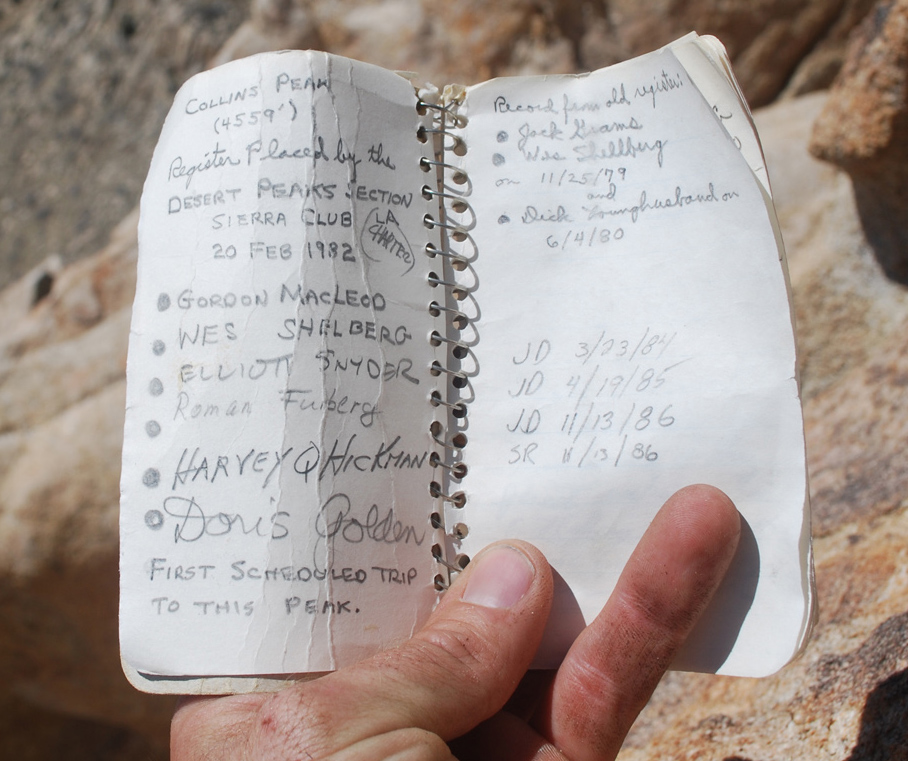 COLLINS PEAK
(4559')
Register Placed by the
DESERT PEAKS SECTION
SIERRA CLUB (LA CHAPTER)
20 FEB 1982
GORDON MACLEOD
WES SHELBERG
ELLIOTT SNYDER
Roman Fuiberg
HARVEY Q HICKMAN
Doris Golden
FIRST SCHEDULED TRIP
TO THIS PEAK.
Record from old register:
Jack Grams
Wes Shellberg
on 11/25/79
and
Dick Younghusband on
6/4/80
JD 3/23/84
JD 4/19/85
JD 11/13/86
SR 11/13/86